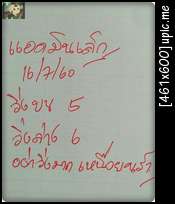 แอดมินเล็ก
16/7/60
วิ่งบน 5
วิ่งล่าง 6
อย่าวิ่งมาก เหนื่อย
[461x600]upic.me